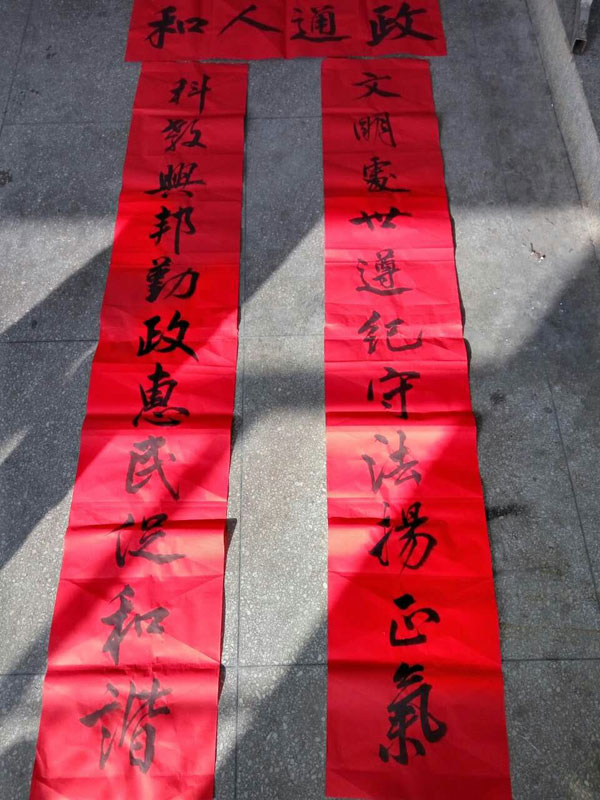 政通人和
文明處世遵紀守法揚正氣
科教興邦勤政惠民促和諧